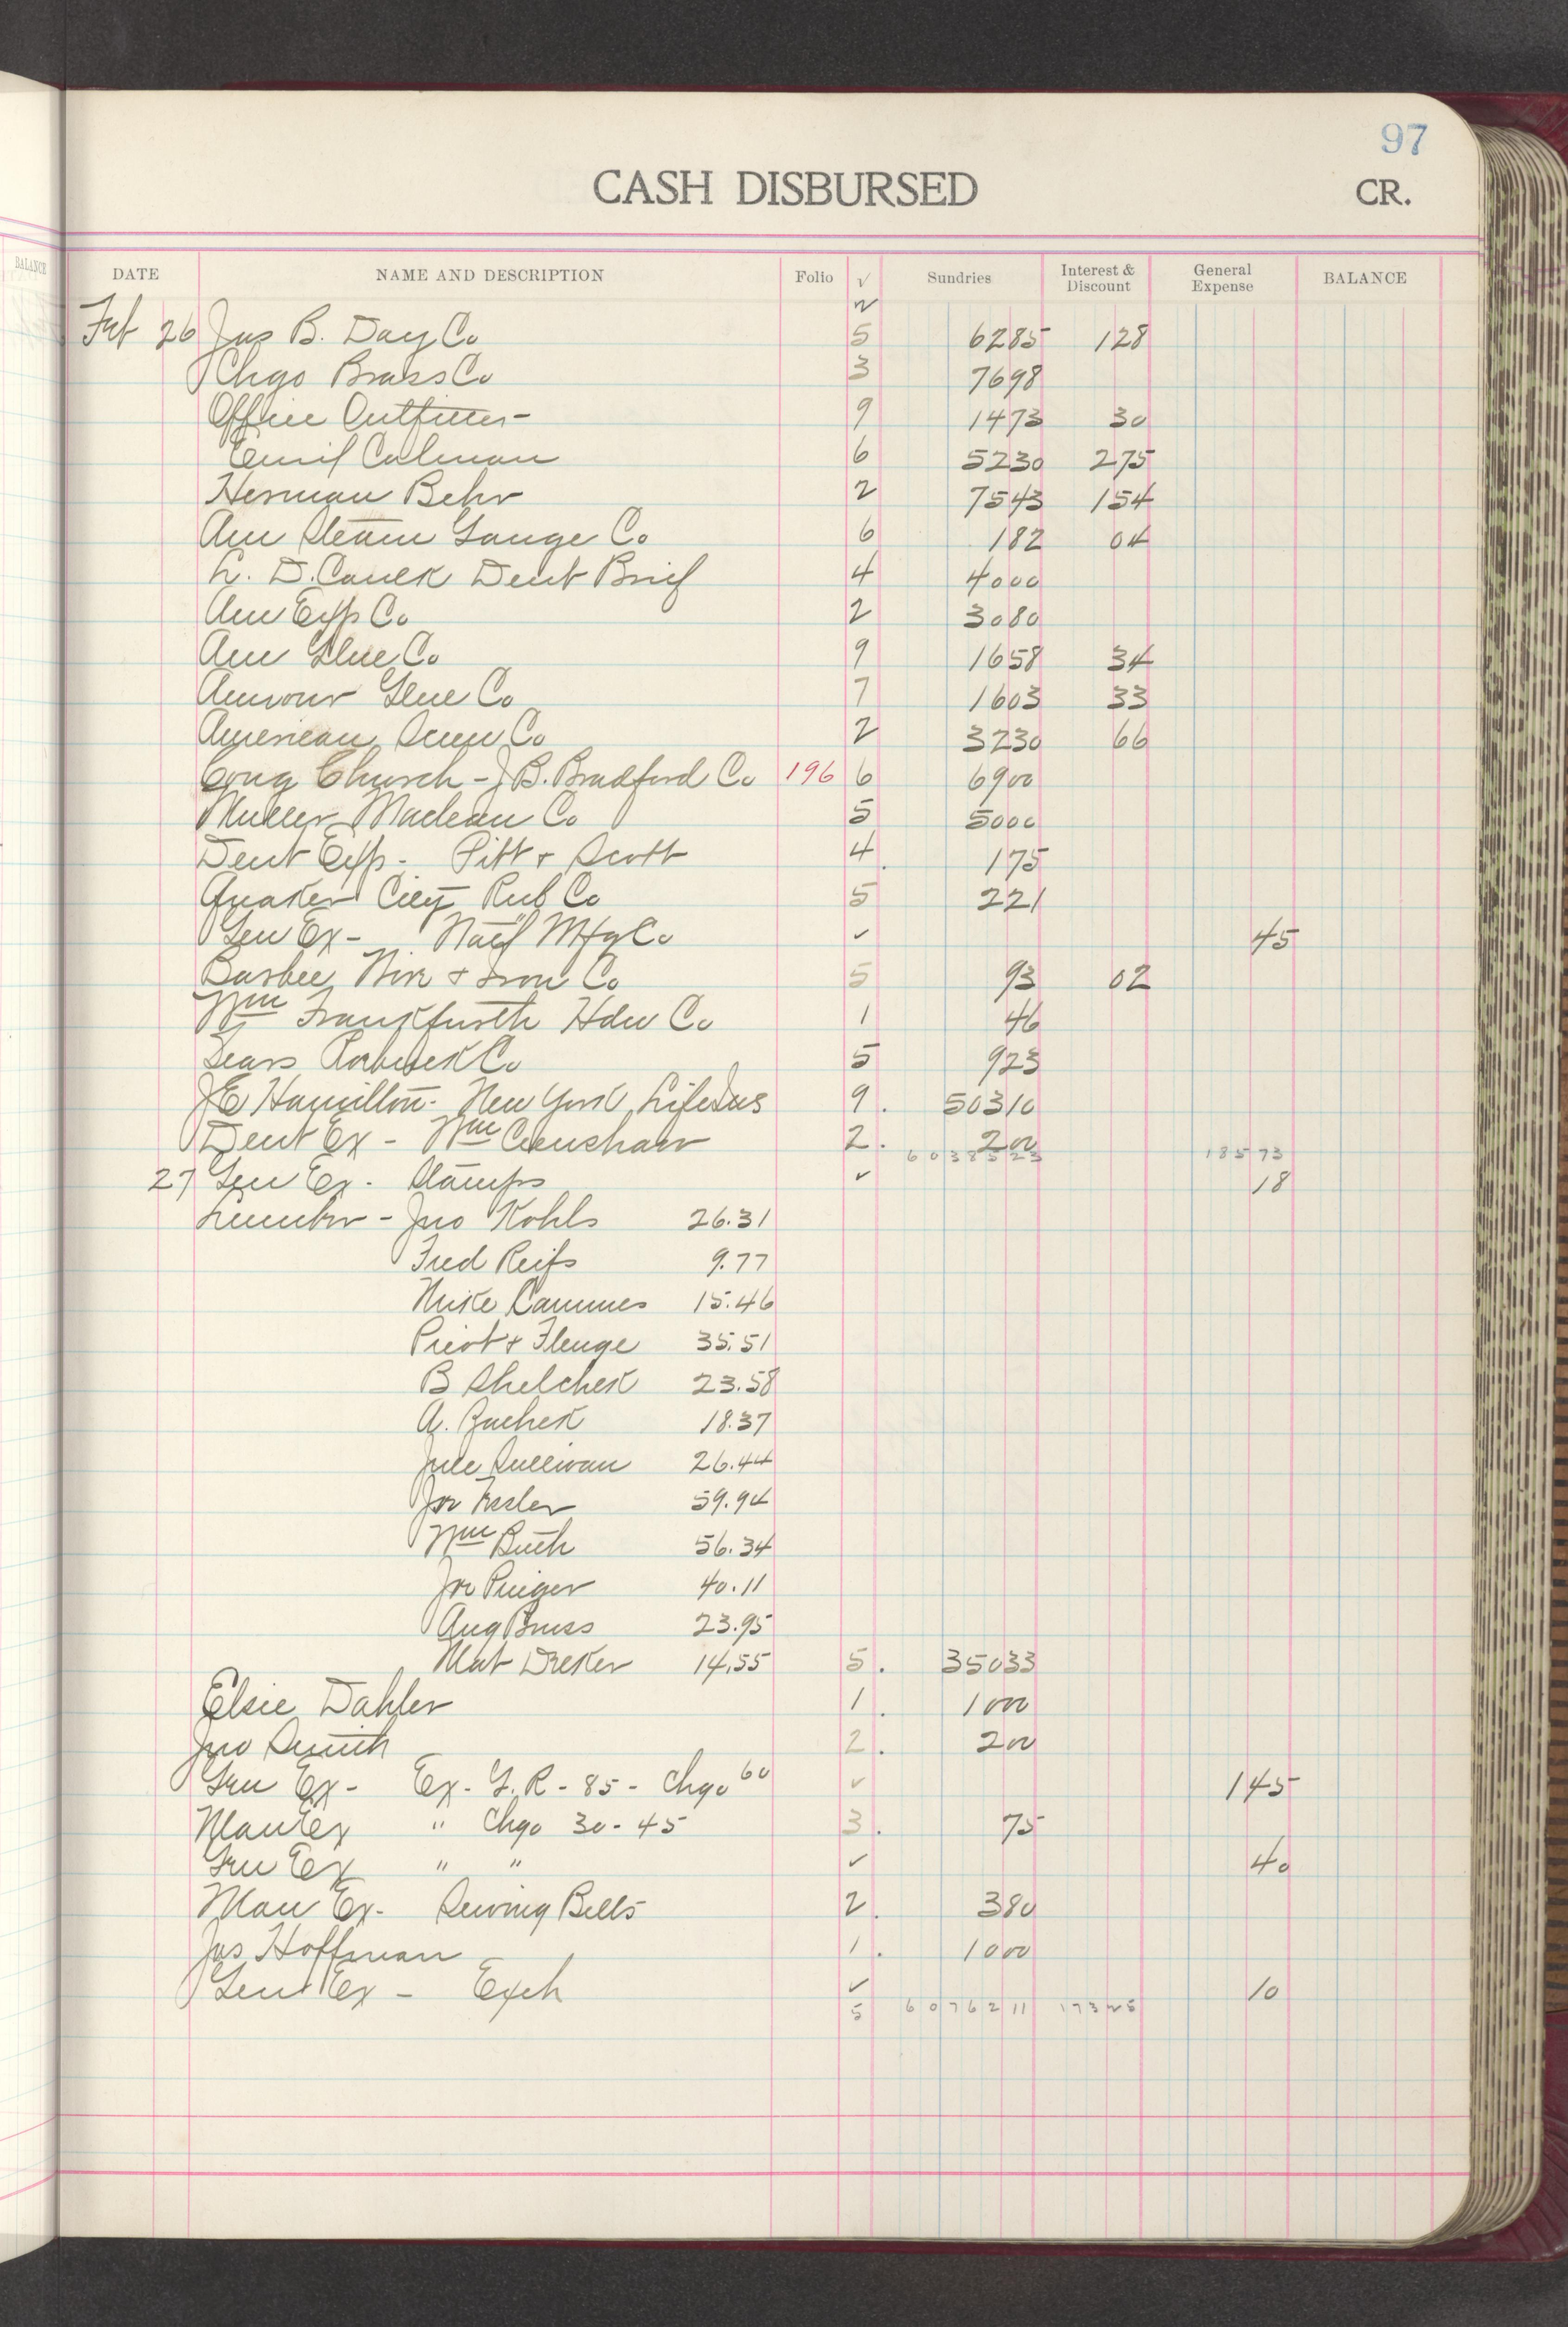 97
CASH DISBURSED CR.
BALANCE
DATE NAME AND DESCRIPTION Folio √ Sundries Interest & Discount General Expense BALANCE
Feb 26 Jas B. Day Co 5 6285 128
Chgo Brass Co 3 7698
Office Outfitters 9 1473 30
Emil Calman 6 5230 275
Herman Behr 2 7543 154
Am Steam Gauge Co 6 182 04
L. D. Caulk Dent Brief 4 4000
Am Exp Co 2 3080
Am Glue Co 9 1658 34
Armour Glue Co 7 1603 33
American Screw Co 2 3230 66
Cong Church - J B. Bradford Co 196 6 6900
Muller Maclean Co 5 5000
Dent Exp - Pitt & Scott 4 175
Quaker City Rub Co 5 221
Gen Ex - Nat'l Mfg Co ✓ 45
Barbee Wire & Iron Co 5 93 02
Wm Frankfurth Hdw Co 1 46
Sears Roebuck Co 5 923
J E Hamilton - New York Life Ins 9 50310
Dent Ex - Wm Crenshaw 2 200
6038523 18573
27 Gen Ex - Stamps ✓ 18
Lumber - Jno Kohls 26.31
Fred Reifs 9.77
Mike Cammes 15.46
Pivot & Flenge 35.51
B Shelchek 23.58
A. Zuchek 18.37
Jule Sullivan 26.44
Joe Fesler 59.94
Wm Buth 56.34
Joe Pinger 40.11
Aug Bruss 23.95
Mat Dreker 14.55 5 35033
Elsie Dahler 1 1000
Jno Smith 2 200
Gen Ex - Ex - G. R - 85 - Chgo 60 ✓ 145
Man Ex " Chgo 30 - 45 3 75
Gen Ex " " ✓ 40
Man Ex - Sewing Belts 2 380
Jas Hoffman 1 1000
Gen Ex - Exch ✓ 10
5 6076211 17325